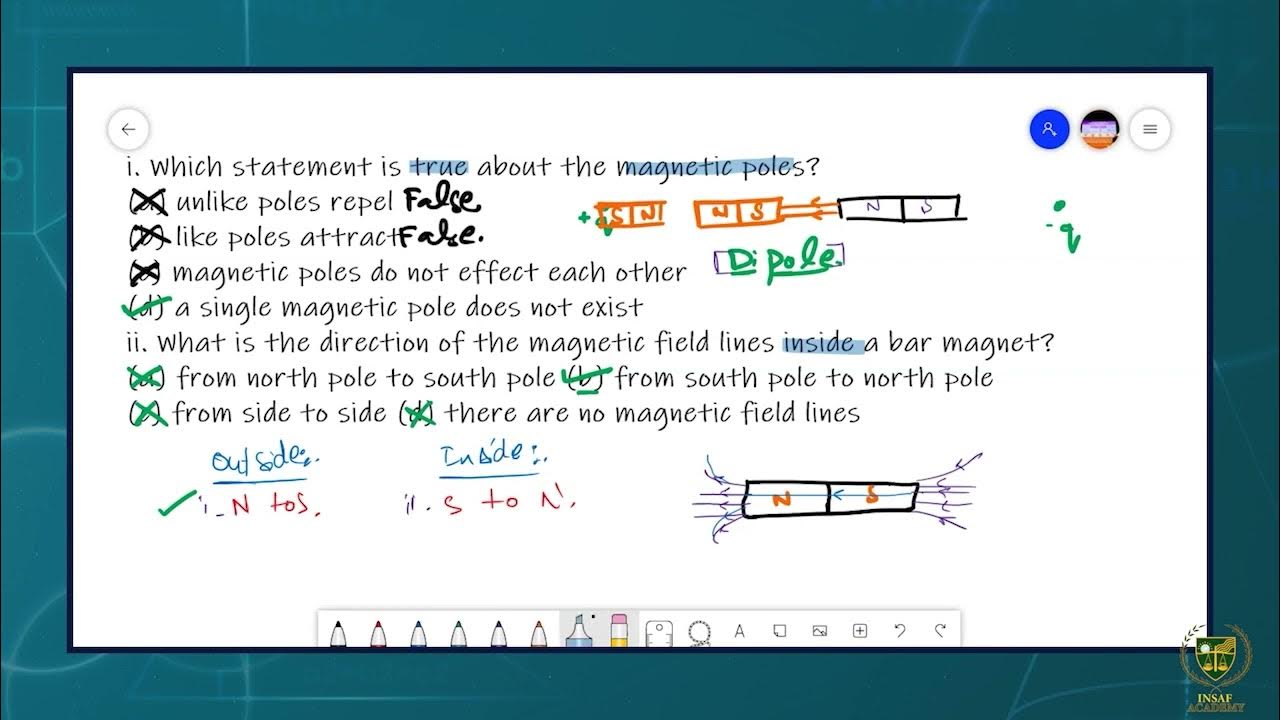 i. Which statement is true about the magnetic poles?
(a) unlike poles repel False
S N N S N S
+q
-q
(b) like poles attract False.
Dipole
(c) magnetic poles do not effect each other
(d) a single magnetic pole does not exist
ii. What is the direction of the magnetic field lines inside a bar magnet?
(a) from north pole to south pole (b) from south pole to north pole
(c) from side to side (d) there are no magnetic field lines
Outside:. Inside:.
i. N to S. ii. S to N.
N S
A
INSAF
ACADEMY